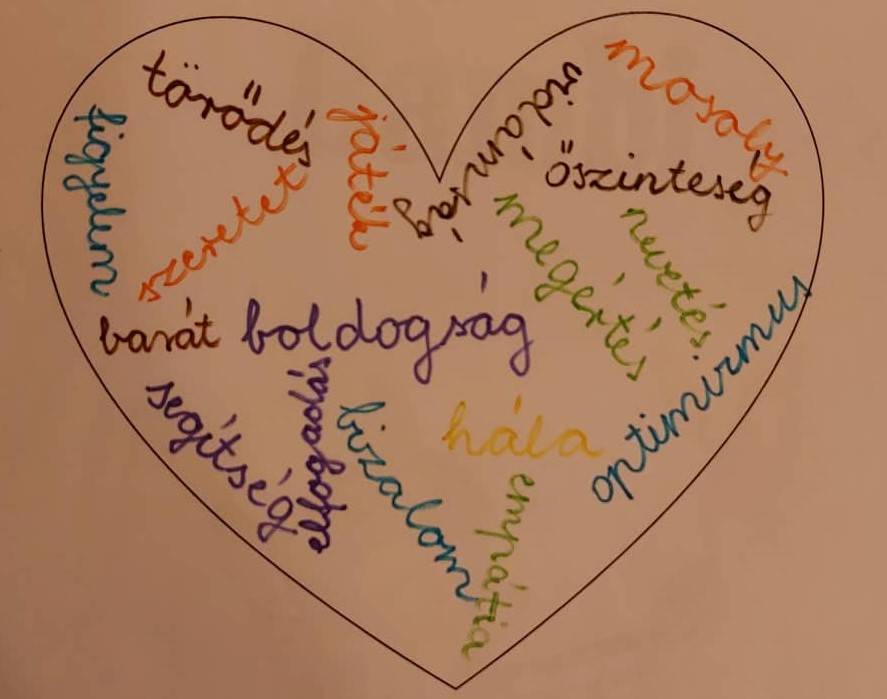 törődés
figyelem
szeretet
játék
vidámság
mosoly
őszinteség
megértés
nevetés
barát
boldogság
optimizmus
segítség
elfogadás
bizalom
hála
empátia